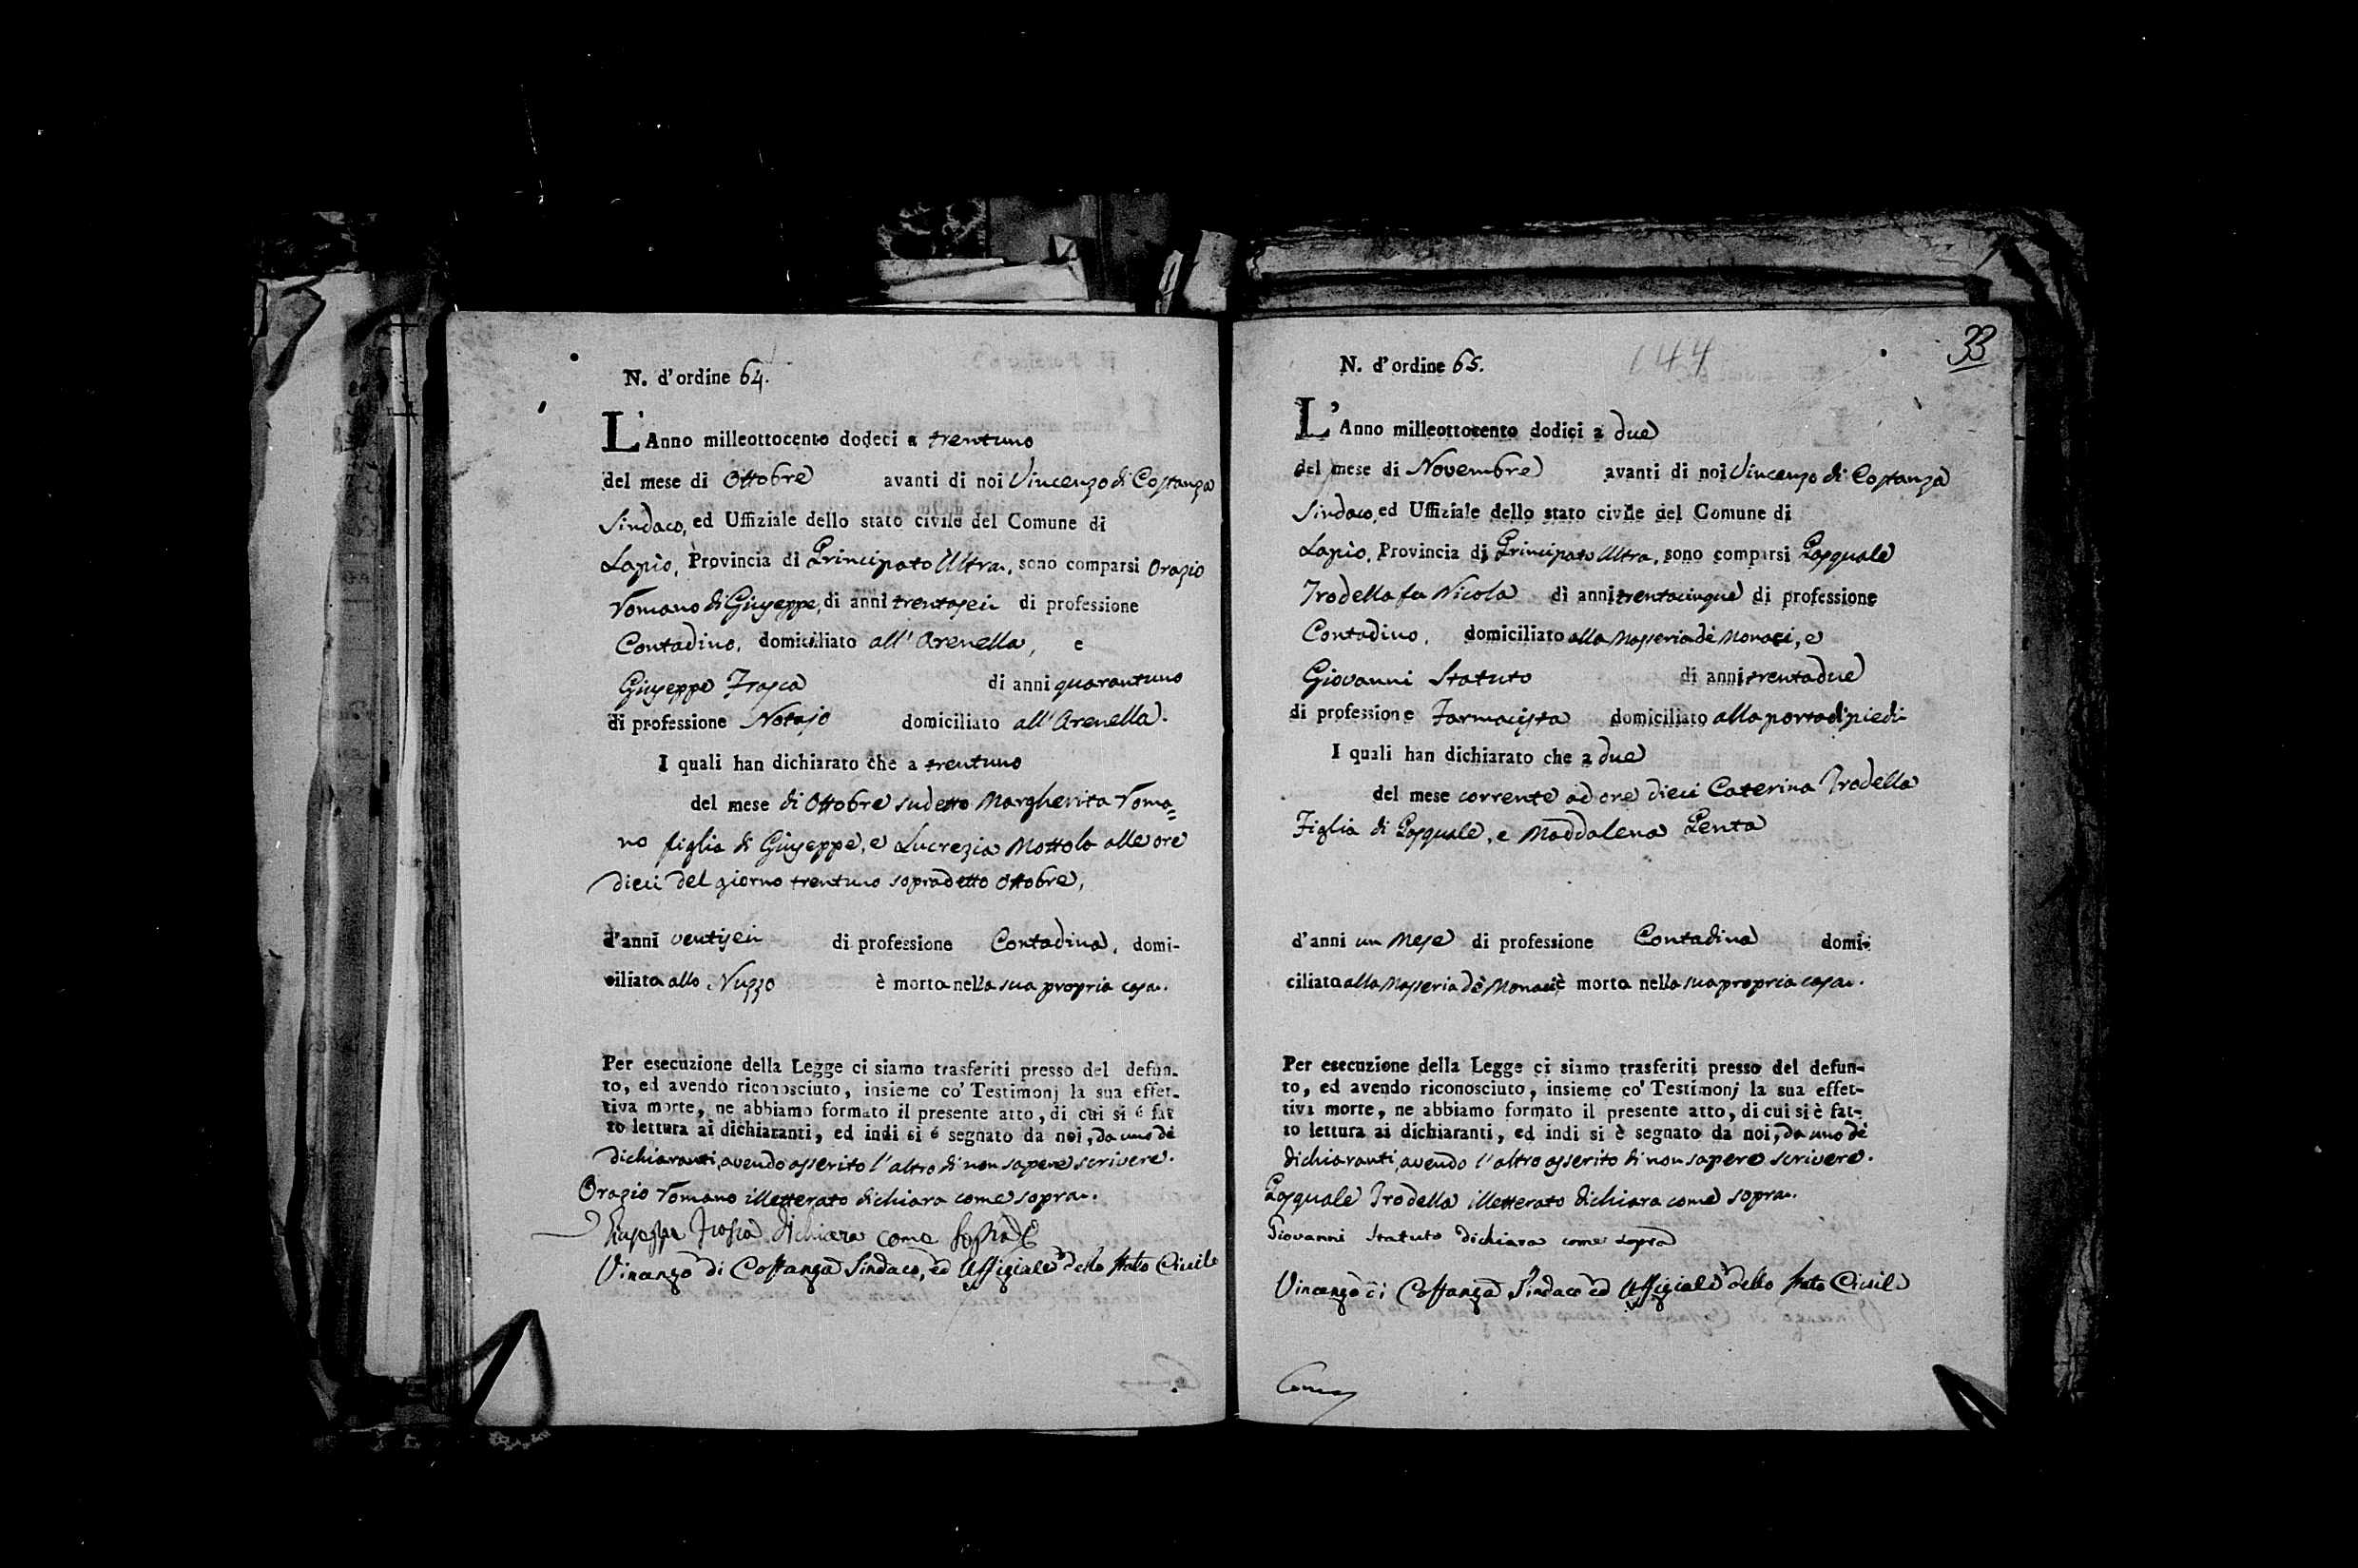 N. d'ordine 64.
L'Anno milleottocento dodeci a trentuno
del mese di Ottobre avanti di noi Vincenzo di Costanza
Sindaco, ed Uffiziale dello stato civile del Comune di
Lapio, Provincia di Principato Ultra, sono comparsi Orazio
Romano di Giuseppe, di anni trentasei di professione
Contadino, domiciliato all'Arenella, e
Giuseppe Frasca di anni quarantuno
di professione Notajo domiciliato all'Arenella.
I quali han dichiarato che a trentuno
del mese di Ottobre sudetto Margherita Roma=
no figlia di Giuseppe, e Lucrezia Mottola alle ore
dieci del giorno trentuno sopradetto Ottobre,
d'anni ventisei di professione Contadina, domi-
ciliata allo Nuzzo è morta nella sua propria casa.
Per esecuzione della Legge ci siamo trasferiti presso del defun-
to, ed avendo riconosciuto, insieme co' Testimonj la sua effet-
tiva morte, ne abbiamo formato il presente atto, di cui si é fat
to lettura ai dichiaranti, ed indi si é segnato da noi, da uno dè
dichiaranti, avendo asserito l'altro di non sapere scrivere.
Orazio Romano illetterato dichiara come sopra.
Giuseppe Frasca dichiara come sopra
Vincenzo di Costanza Sindaco, ed Uffiziale dello stato Civile
33
144
N. d'ordine 65.
L'Anno milleottocento dodici a due
del mese di Novembre avanti di noi Vincenzo di Costanza
Sindaco, ed Uffiziale dello stato civile del Comune di
Lapio, Provincia di Principato Ultra, sono comparsi Pasquale
Trodella fu Nicola di anni trentacinque di professione
Contadino, domiciliato alla Masseria dè Monaci, e
Giovanni Statuto di anni trentadue
di professione Farmacista domiciliato alla porta di piedi
I quali han dichiarato che a due
del mese corrente ad ore dieci Caterina Trodella
Figlia di Pasquale, e Maddalena Penta
d'anni un Mese di professione Contadina domi-
ciliata alla Masseria dè Monaci è morta nella sua propria casa.
Per esecuzione della Legge ci siamo trasferiti presso del defun-
to, ed avendo riconosciuto, insieme co' Testimonj la sua effet-
tiva morte, ne abbiamo formato il presente atto, di cui si è fat-
to lettura ai dichiaranti, ed indi si è segnato da noi, da uno dè
dichiaranti, avendo l'altro asserito di non sapere scrivere.
Pasquale Trodella illetterato dichiara come sopra.
Giovanni Statuto dichiara come sopra
Vincenzo di Costanza Sindaco ed Uffiziale dello stato Civile